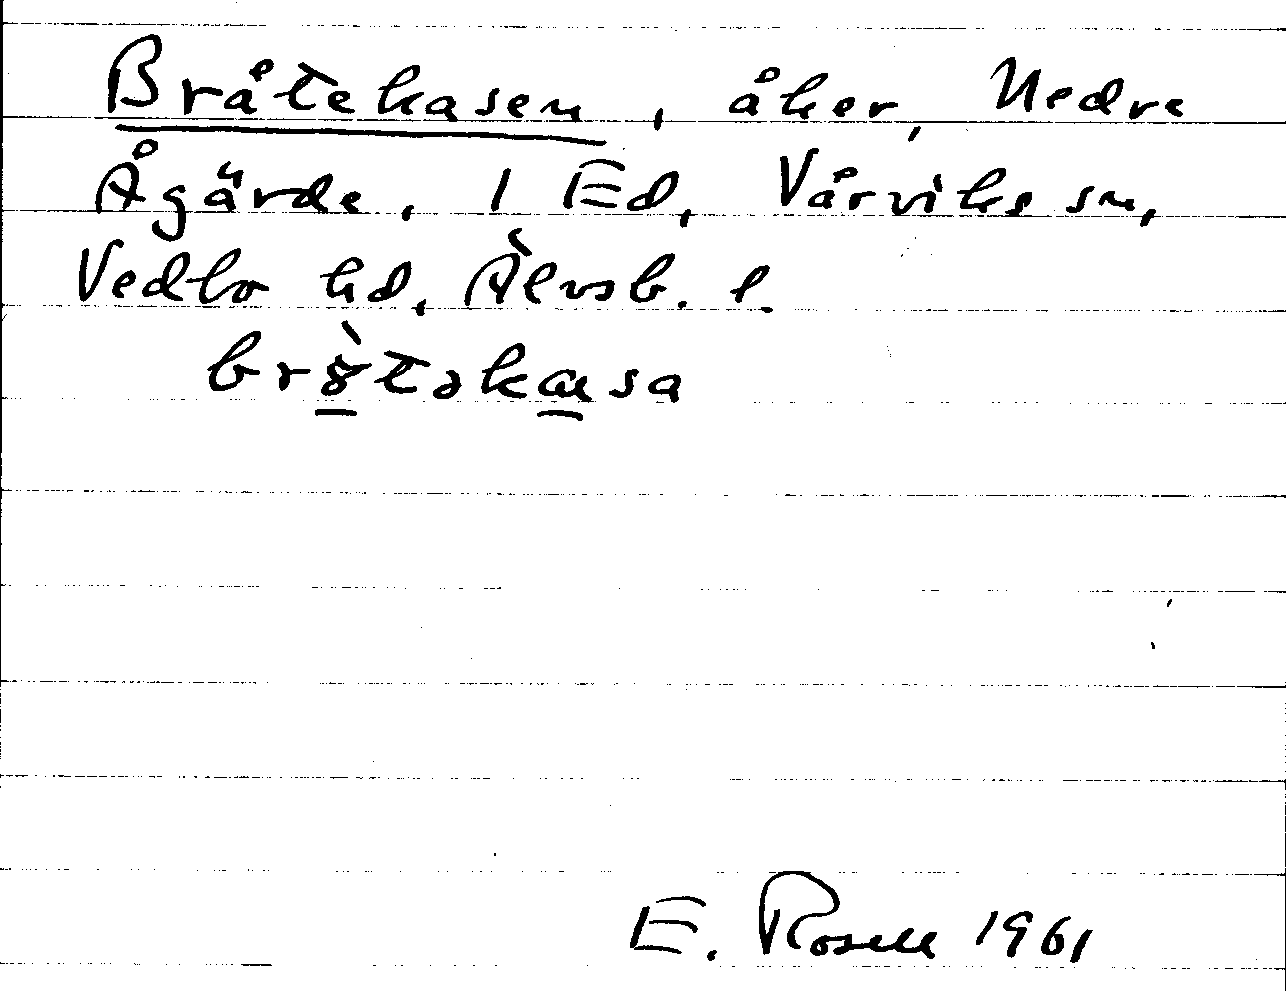 Bråtekasen, åker, Nedre
Ågärde, 1 Ed, Vårviks sn,
Vedbo hd, Älvsb. l.
E. Rosell 1961